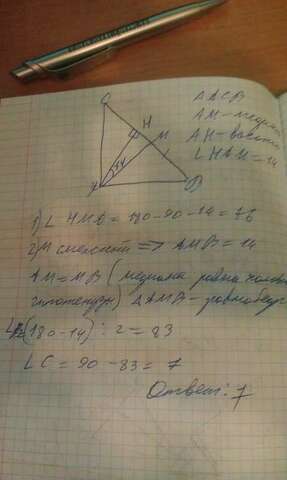 C
H
M
14
B
△ACB
AM - медиана
AH - высота
∠HAM = 14
1) ∠HMA = 180 - 90 - 14 = 76
2) M смежный => AMB = 14
AM = MB (медиана равна
гипотенузы) △AMB - равнобед
(180 - 14) : 2 = 83
∠C = 90 - 83 = 7
Ответ: 7